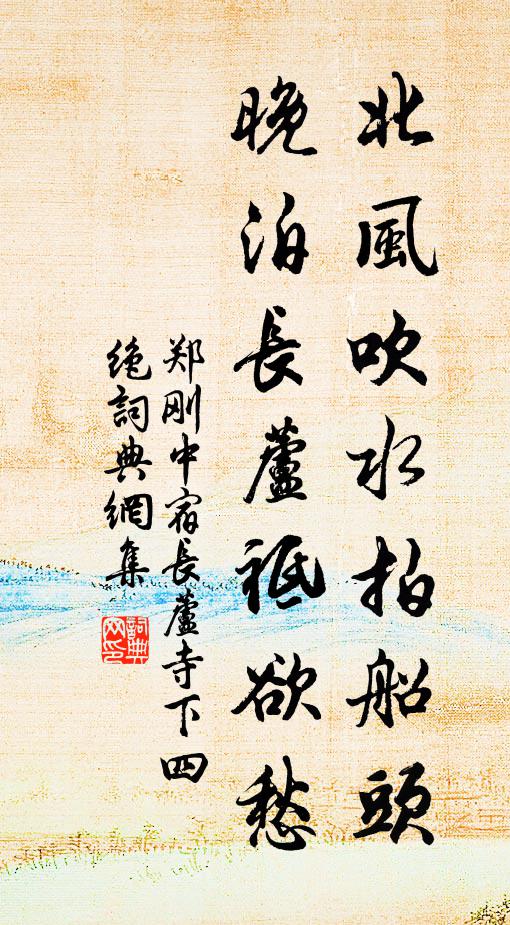 北風吹水拍船頭
晚泊長蘆祗欲愁
郑刚中宿長蘆寺下四
绝詞典網集
詞典
网印